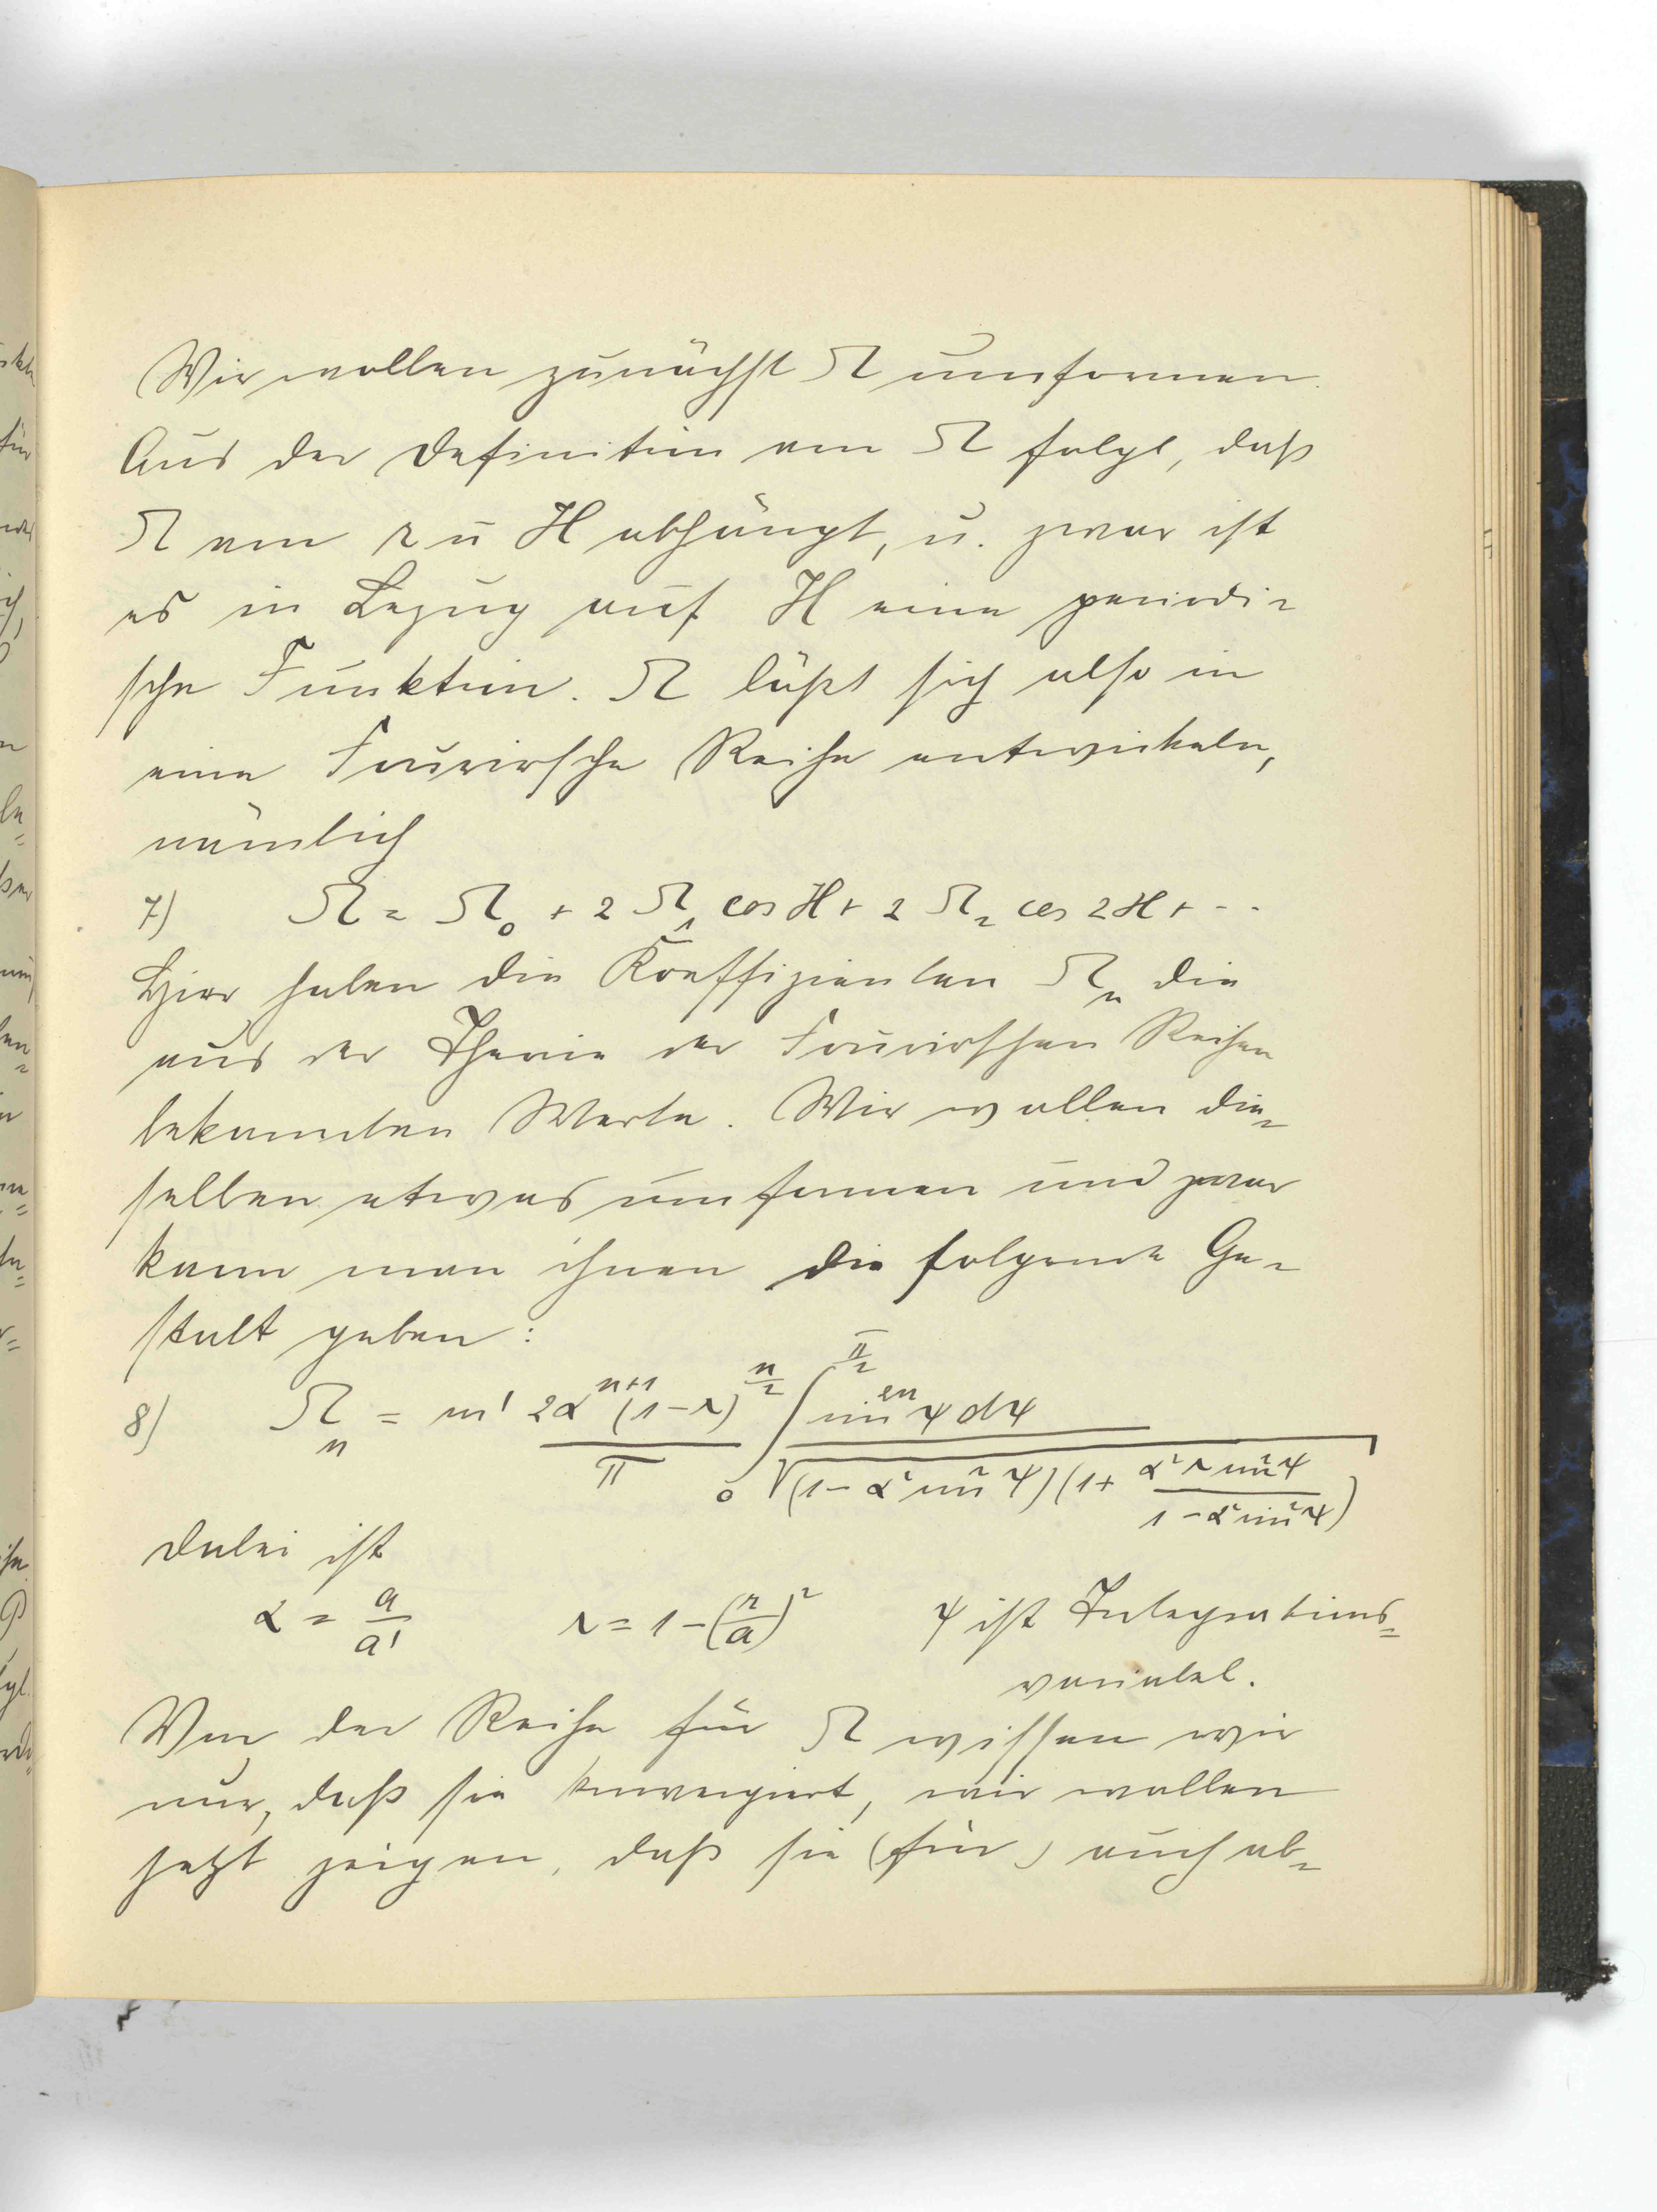 Wir wollen zunächst Ω umformen.
Aus der Definition von Ω folgt, daß
Ω von r u H abhängt, u. zwar ist
es in Bezug auf H eine periodi-
sche Funktion. Ω läßt sich also in
eine Fouriersche Reihe entwickeln,
nämlich
7) Ω = Ω₀ + 2 Ω₁ cos H + 2 Ω₂ cos 2H + ...
Hier haben die Koeffizienten Ωₙ die
aus der Theorie der Fourierschen Reihen
bekannten Werte. Wir wollen die-
selben etwas umformen und zwar
kann man ihnen die folgende Ge-
stalt geben:
8) Ωₙ = m' 2α^{n+1} (1-λ)^{n/2} / π ∫₀^{π/2} sin^{2n} ψ dψ / √((1-α² sin² ψ)(1 + α² λ sin² ψ / (1-α² sin² ψ)))
Dabei ist
α = a/a' λ = 1-(r/a)² ψ ist Integrations-
variabel.
Von der Reihe für Ω wissen wir
nur, daß sie konvergiert, wir wollen
jetzt zeigen, daß sie (für) auch ab-